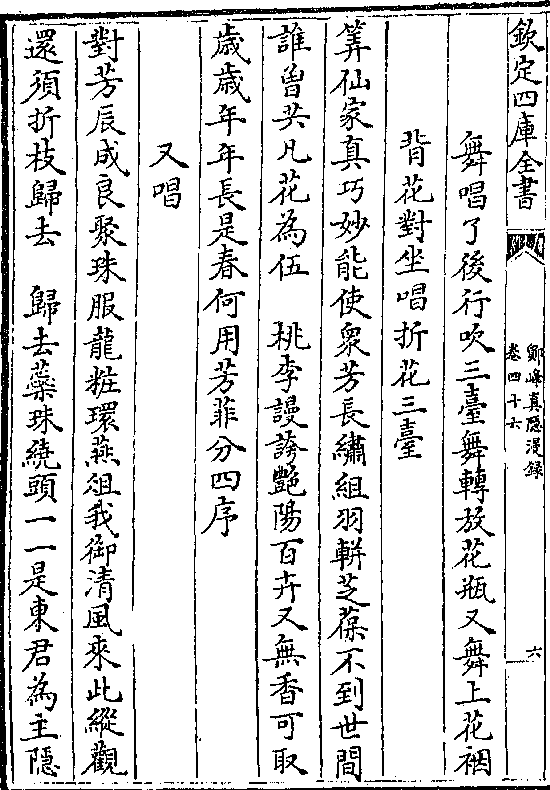 欽定四庫全書
鄮峰真隱漫録
卷四十六
六
舞唱了後行吹三臺舞轉放花瓶又舞上花裀
背花對坐唱折花三臺
筭仙家真巧妙能使衆芳長繡組羽軿芝葆不到世間
誰曽共凡花為伍　桃李謾誇艶陽百卉又無香可取
歳歳年年長是春何用芳菲分四序
又唱
對芳辰成良聚珠服龍粧環燕俎我御清風來此縱觀
還須折枝歸去　歸去蘂珠繞頭一一是東君為主隱